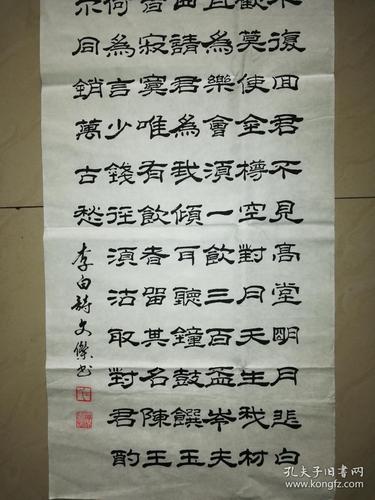 不復回君不見高堂明月悲白
歡莫使金樽空對月天生我材
且為樂會須一飲三百盃岑夫
曲請君為我傾耳聽鐘鼓饌玉
皆寂寞唯有飲者留其名陳王
何為言少錢徑須沽取對君酌
尔同銷萬古愁
李白詩文傑书
孔夫子旧书网
www.kongfz.com